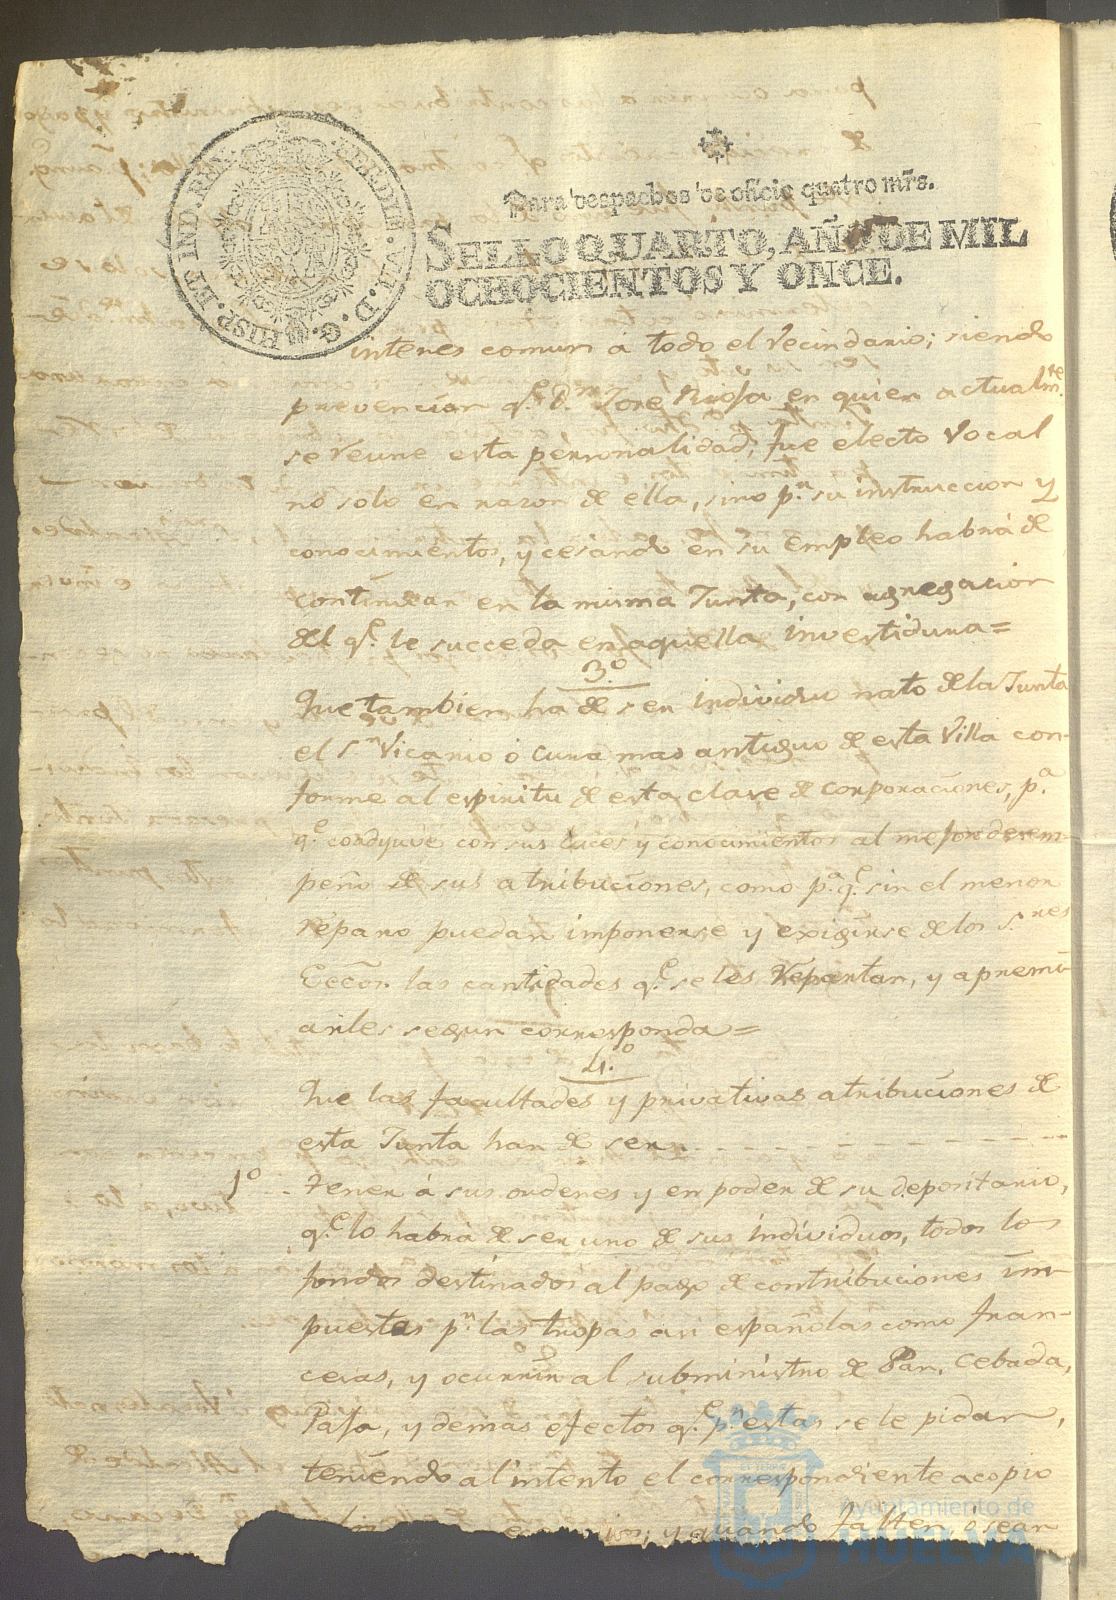 HISP. ET IND. REX. FERDIN. VII. D. G.
Para despachos de oficio quatro mrs.
SELLO QUARTO, AÑO DE MIL
OCHOCIENTOS Y ONCE.
interes comun a todo el Vecindario; siendo
prevencion q.e D.n Jose Rioja en quien actualm.te
se reune esta personalidad, fue electo Vocal
no solo en razon de ella, sino p.r su instruccion y
conocimientos, y cesando en su empleo habrá de
continuar en la misma Junta, con agregacion
del q.e le succeda en aquella investidura =
3.o
Que tambien ha de ser individuo nato de la Junta
el S.r Vicario o Cura mas antiguo de esta Villa con-
forme al espiritu de esta clase de corporaciones, p.a
q.e coadyuve con sus luces y conocimientos al mejor desem-
peño de sus atribuciones, como p.a q.e sin el menor
réparo puedan imponerse y exigirse de los S.res
Eccos. las cantidades q.e se les repartan, y apremi-
arles segun corresponda =
4.o
Que las facultades y privativas atribuciones de
esta Junta han de ser
1o tener á sus ordenes y en poder de su depositario,
q.e lo habrá de ser uno de sus individuos, todos los
fondos destinados al pago de contribuciones im-
puestas p.r las tropas asi españolas como fran-
cesas, y ocurrir al subministro de Pan, Cebada,
Paja, y demas efectos q.e p.r estas se le pidan,
teniendo al intento el correspondiente acopio
y quando falten, o sean
Ayuntamiento de
HUELVA